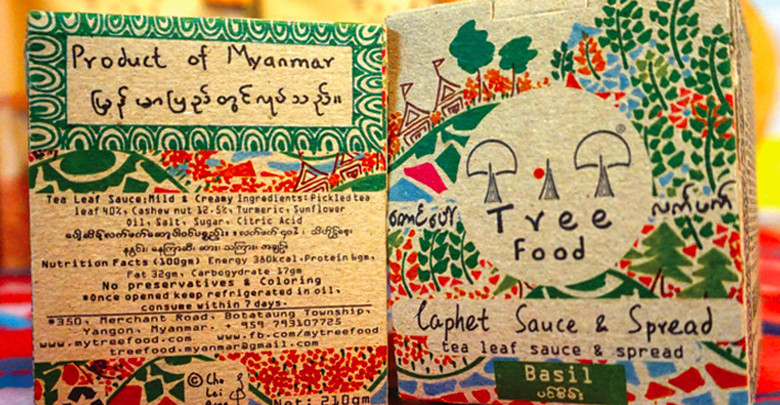 Product of Myanmar
မြန်မာပြည်တွင်လုပ်သည်။
Tea Leaf Sauce:Mild & Creamy Ingredients:Pickled tea
leaf 40%, Cashew nut 12.5%, Turmeric, Sunflower
Oil, Salt, Sugar, Citric Acid
Nutrition Facts (100gm) Energy 380kcal,Protein 6gm,
Fat 32gm, Carbogydrate 17gm
No preservatives & Coloring
*Once opened keep refrigerated in oil,
consume within 7 days.
#350, Merchant Road, Botataung Township,
Yangon, Myanmar. + 959 793107725
www.mytreefood.com www.fb.com/mytreefood
treefood.myanmar@gmail.com
© Cho
Lei
Net: 210gm
®
Tree
Food
လက်ဖက်
Laphet Sauce & Spread
tea leaf sauce & spread
Basil
ပင်စိမ်း